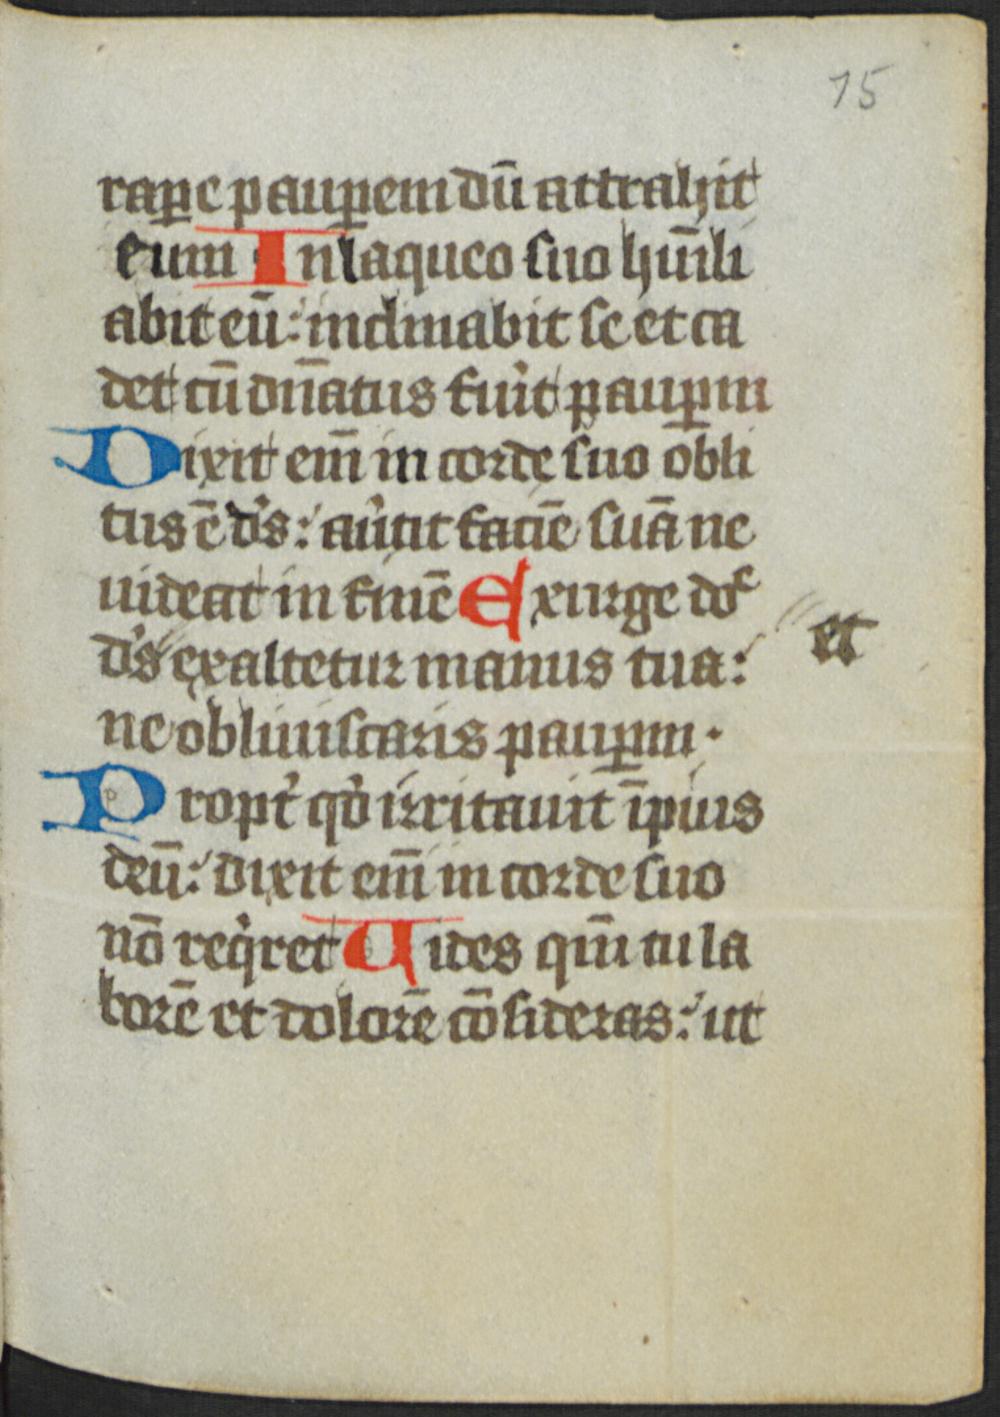 15
rap̲e paup̲em dū attrahit
eum In laqueo suo hūili
abit eū: inclinabit se et ca
det cū dn̄atus fuit paup̲um
Dixit em̄ in corde suo obli
tus ē ds: autit faciē suā ne
uideat in finē Exurge do
et
ds exaltetur manus tua:
ne obliuiscaris paup̲um.
Propt qd irritauit īpius
deū: dixit em̄ in corde suo
nō reqret Uides qm̄ tu la
borē et dolorē cōsideras: ut